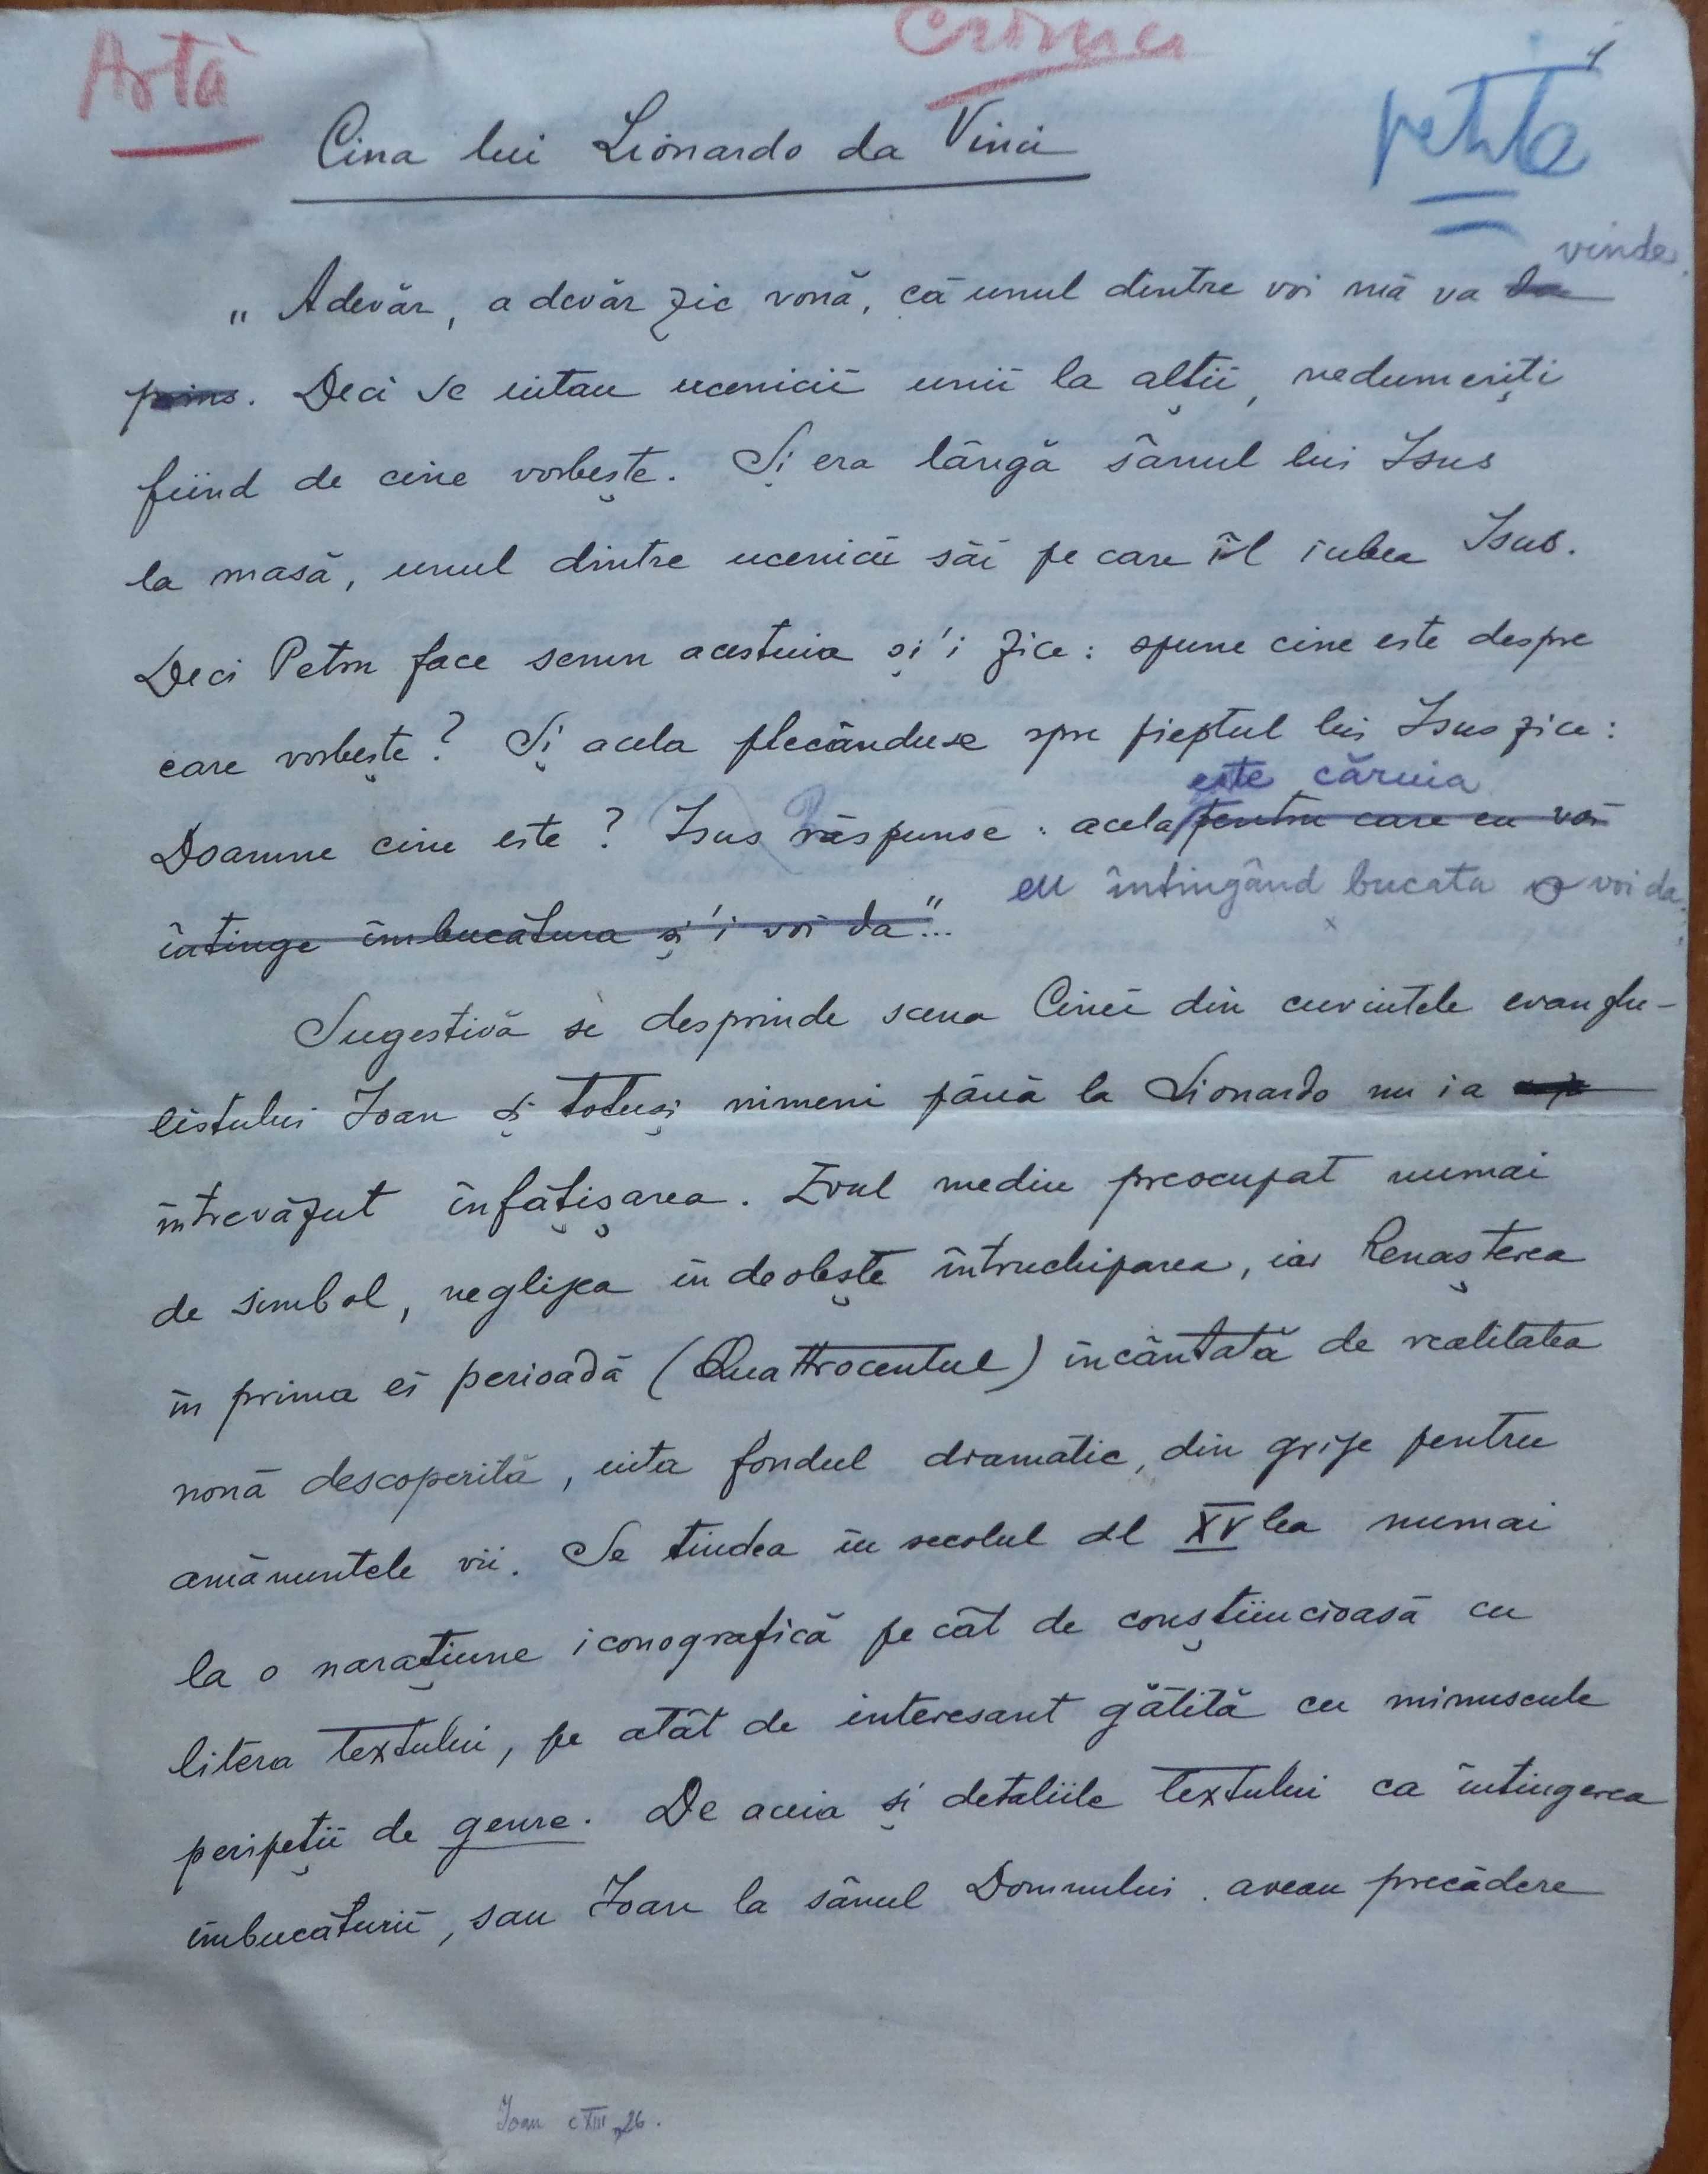 Artă
Cronica
1
petită
Cina lui Lionardo da Vinci
vinde.
„Adevăr, adevăr zic vouă, că unul dintre voi mă va da
prins. Deci se uitau ucenicii unii la alții, nedumeriți
fiind de cine vorbește. Și era lângă sânul lui Isus
la masă, unul dintre ucenicii săi pe care îl iubea Isus.
Deci Petru face semn acestuia și'i zice: spune cine este despre
care vorbește? Și acela plecânduse spre pieptul lui Isus zice:
este căruia
Doamne cine este? Isus răspunse: acela pentru care eu voi
eu întingând bucata o voi da.
întinge îmbucătura și'i voi da"...
Sugestivă se desprinde scena Cinei din cuvintele evanghe-
listului Ioan și totuși nimeni până la Lionardo nu i a
întrevăzut înfățișarea. Evul mediu preocupat numai
de simbol, neglijea îndeobește întruchiparea, iar Renașterea
în prima ei perioadă (Quattrocentul) încântată de realitatea
nouă descoperită, uita fondul dramatic, din grije pentru
amănuntele vii. Se tindea în secolul al XV lea numai
la o narațiune iconografică pe cât de conștiincioasă cu
litera textului, pe atât de interesant gătită cu minuscule
peripeții de genre. De aceia și detaliile textului ca întingerea
îmbucăturii, sau Ioan la sânul Domnului. aveau precădere
Ioan c XIII, 26.